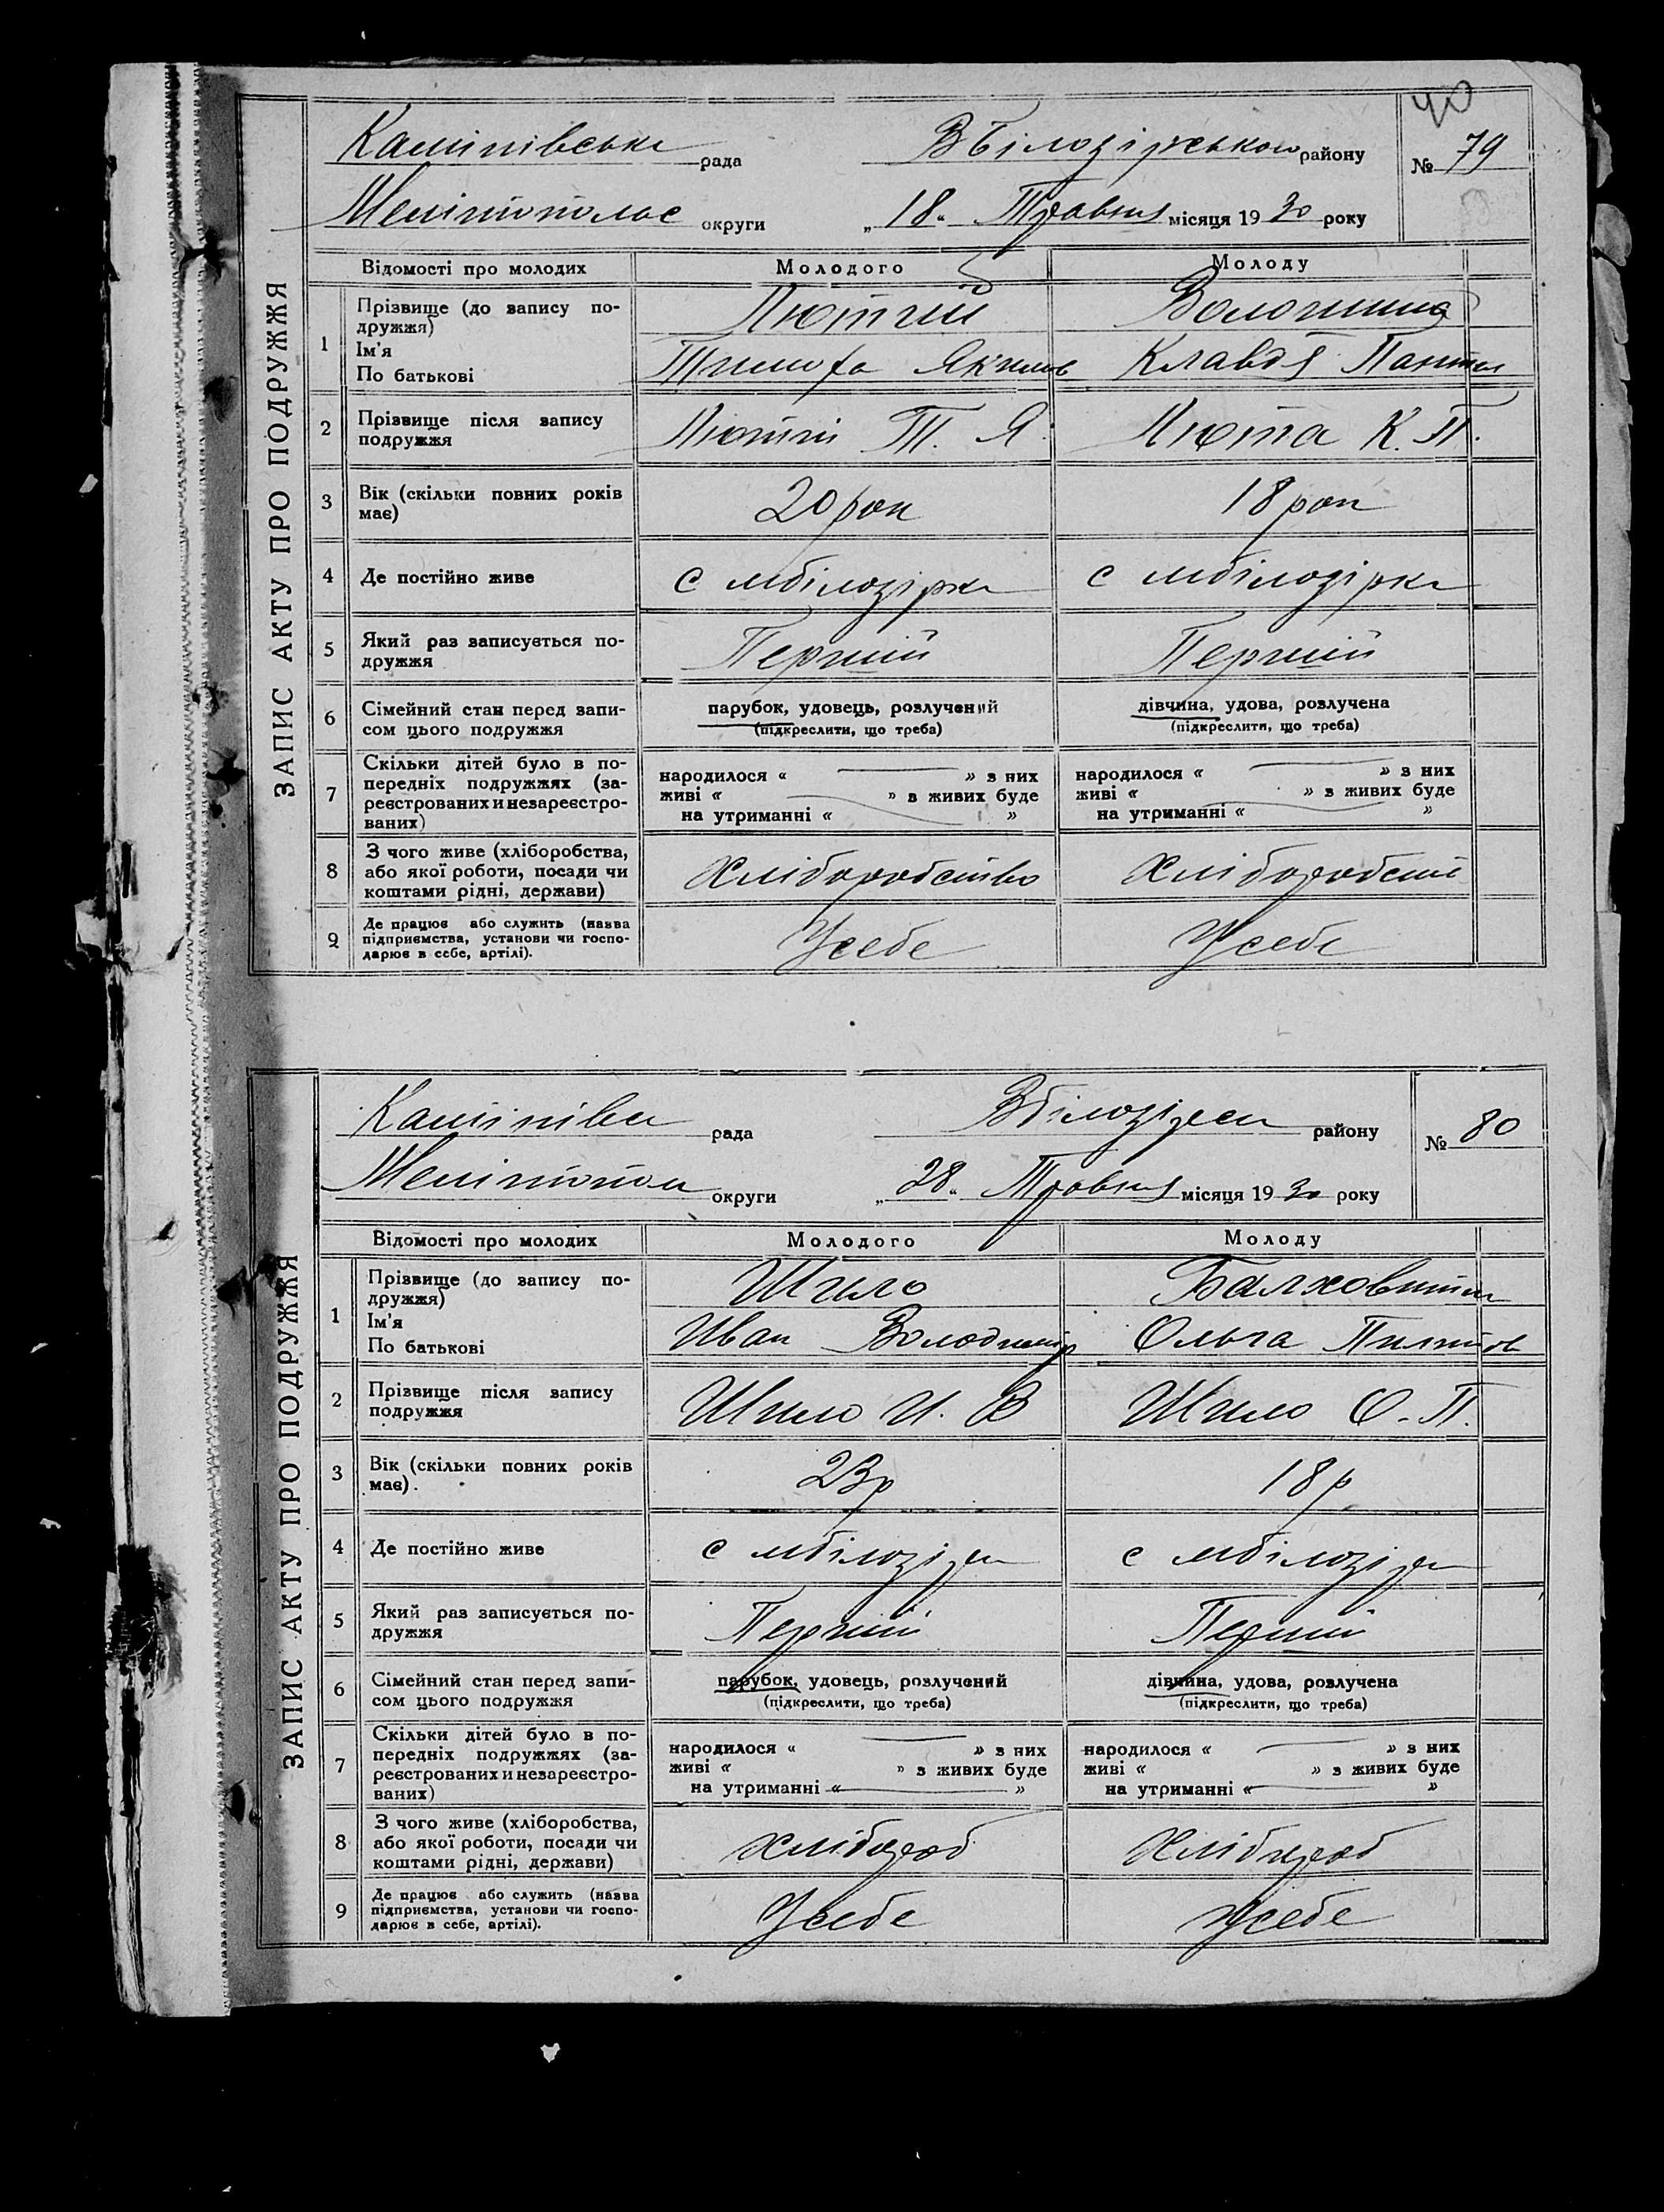 40
рада
району
№ 79
округи
„18“ Травня місяця 1930 року
ЗАПИС АКТУ ПРО ПОДРУЖЖЯ
Відомості про молодих Молодого Молоду
1 Прізвище (до запису по-
дружжя)
Ім'я
По батькові
Лютий
Клавдя
2 Прізвище після запису
подружжя
Т. Я. Люта К. П.
3 Вік (скільки повних років
має)
20 рок 18 рок
4 Де постійно живе
с мбілозірка с мбілозірка
5 Який раз записується по-
дружжя
Перший Перший
6 Сімейний стан перед запи-
сом цього подружжя
парубок, удовець, розлучений дівчина, удова, розлучена
(підкреслити, що треба) (підкреслити, що треба)
7 Скільки дітей було в по-
передніх подружжях (за-
реєстрованих и незареєстро-
ваних)
народилося « » з них
живі « » в живих буде
на утриманні « »
народилося « » з них
живі « » в живих буде
на утриманні « »
8 З чого живе (хліборобства,
або якої роботи, посади чи
коштами рідні, держави)
Хліборобство
9 Де працює або служить (назва
підприємства, установи чи госпо-
дарює в себе, артілі).
Усебе Усебе
рада
району
№ 80
округи
„28“ Травня місяця 1930 року
ЗАПИС АКТУ ПРО ПОДРУЖЖЯ
Відомості про молодих Молодого Молоду
1 Прізвище (до запису по-
дружжя)
Ім'я
По батькові
Шило
Иван Володимір Ольга
2 Прізвище після запису
подружжя
Шило И. В Шило О. П.
3 Вік (скільки повних років
має).
23р 18р
4 Де постійно живе
5 Який раз записується по-
дружжя
Перший Перший
6 Сімейний стан перед запи-
сом цього подружжя
парубок, удовець, розлучений дівчина, удова, розлучена
(підкреслити, що треба) (підкреслити, що треба)
7 Скільки дітей було в по-
передніх подружжях (за-
реєстрованих и незареєстро-
ваних)
народилося « » з них
живі « » з живих буде
на утриманні « »
народилося « » з них
живі « » з живих буде
на утриманні « »
8 З чого живе (хліборобства,
або якої роботи, посади чи
коштами рідні, держави)
хлібороб Хлібороб
9 Де працює або служить (назва
підприємства, установи чи госпо-
дарює в себе, артілі).
Усебе Усебе